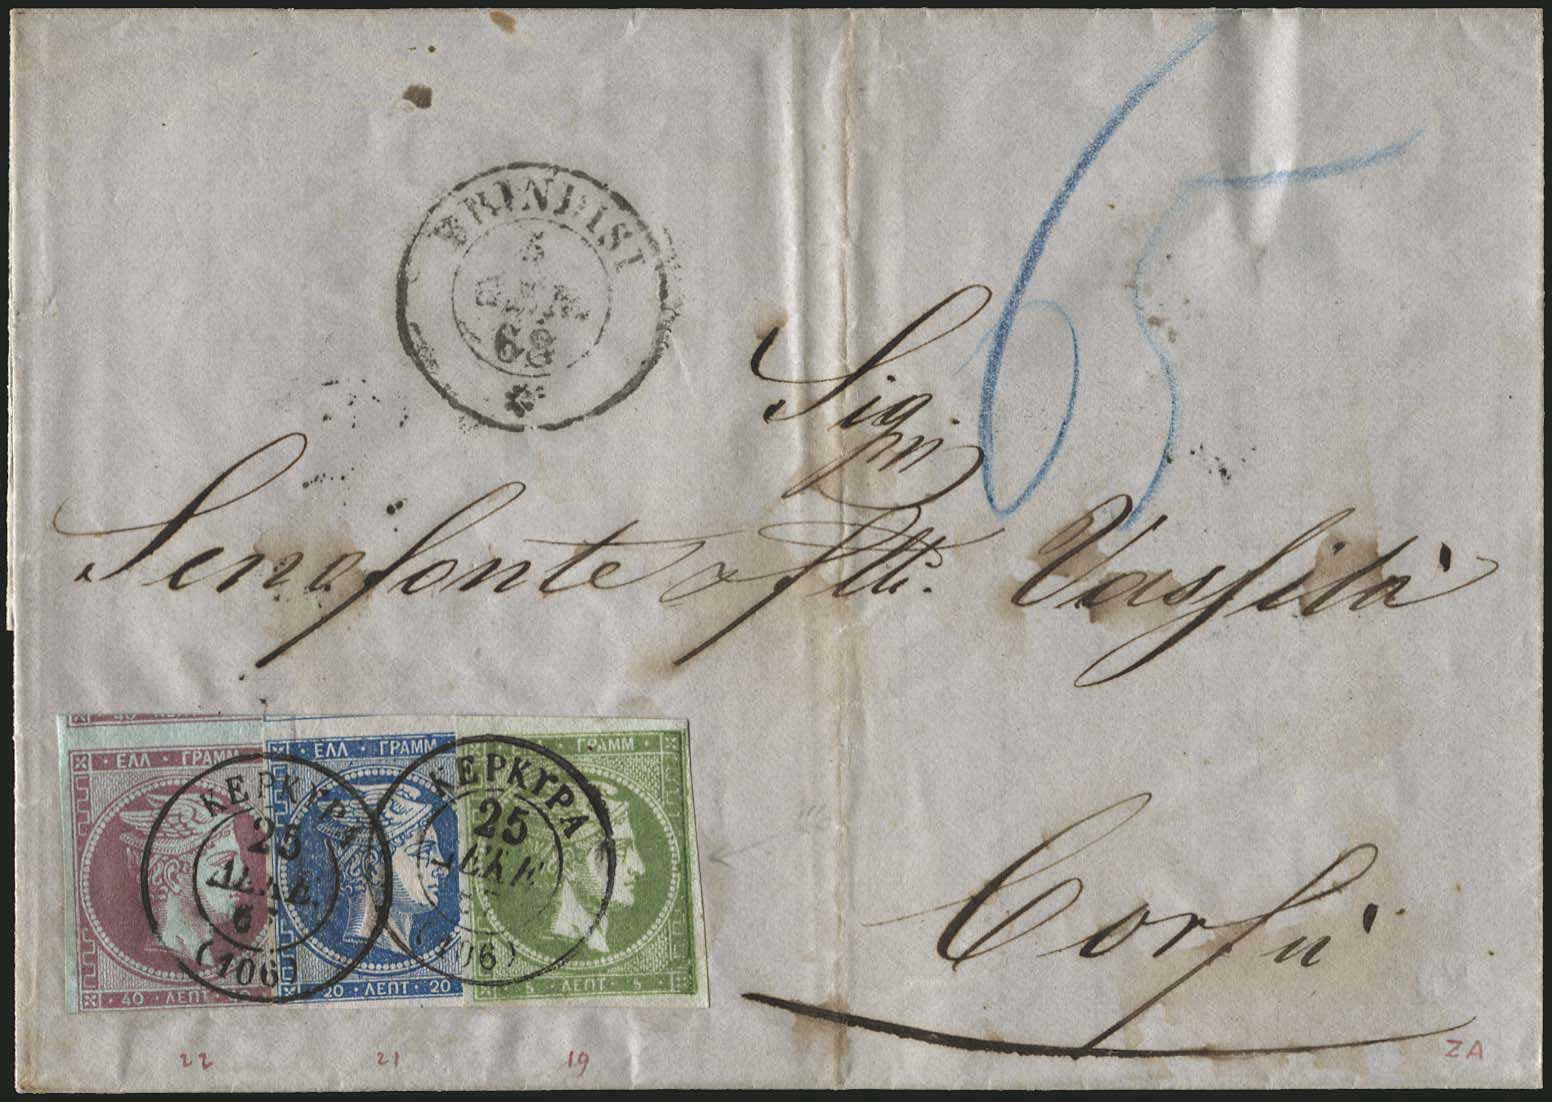 65
BRINDISI
5
GEN.
68
Sigri
Senofonte & Flli. Vassilà
Corfù
ΕΛΛ ΓΡΑΜΜ
40 ΛΕΠΤ
ΕΛΛ ΓΡΑΜΜ
20 ΛΕΠΤ 20
ΓΡΑΜΜ
5 ΛΕΠΤ 5
ΚΕΡΚΥΡΑ
25
ΔΕΚΕ
6
(106)
ΚΕΡΚΥΡΑ
25
ΔΕΚΕ
(106)
22 21 19
ZA